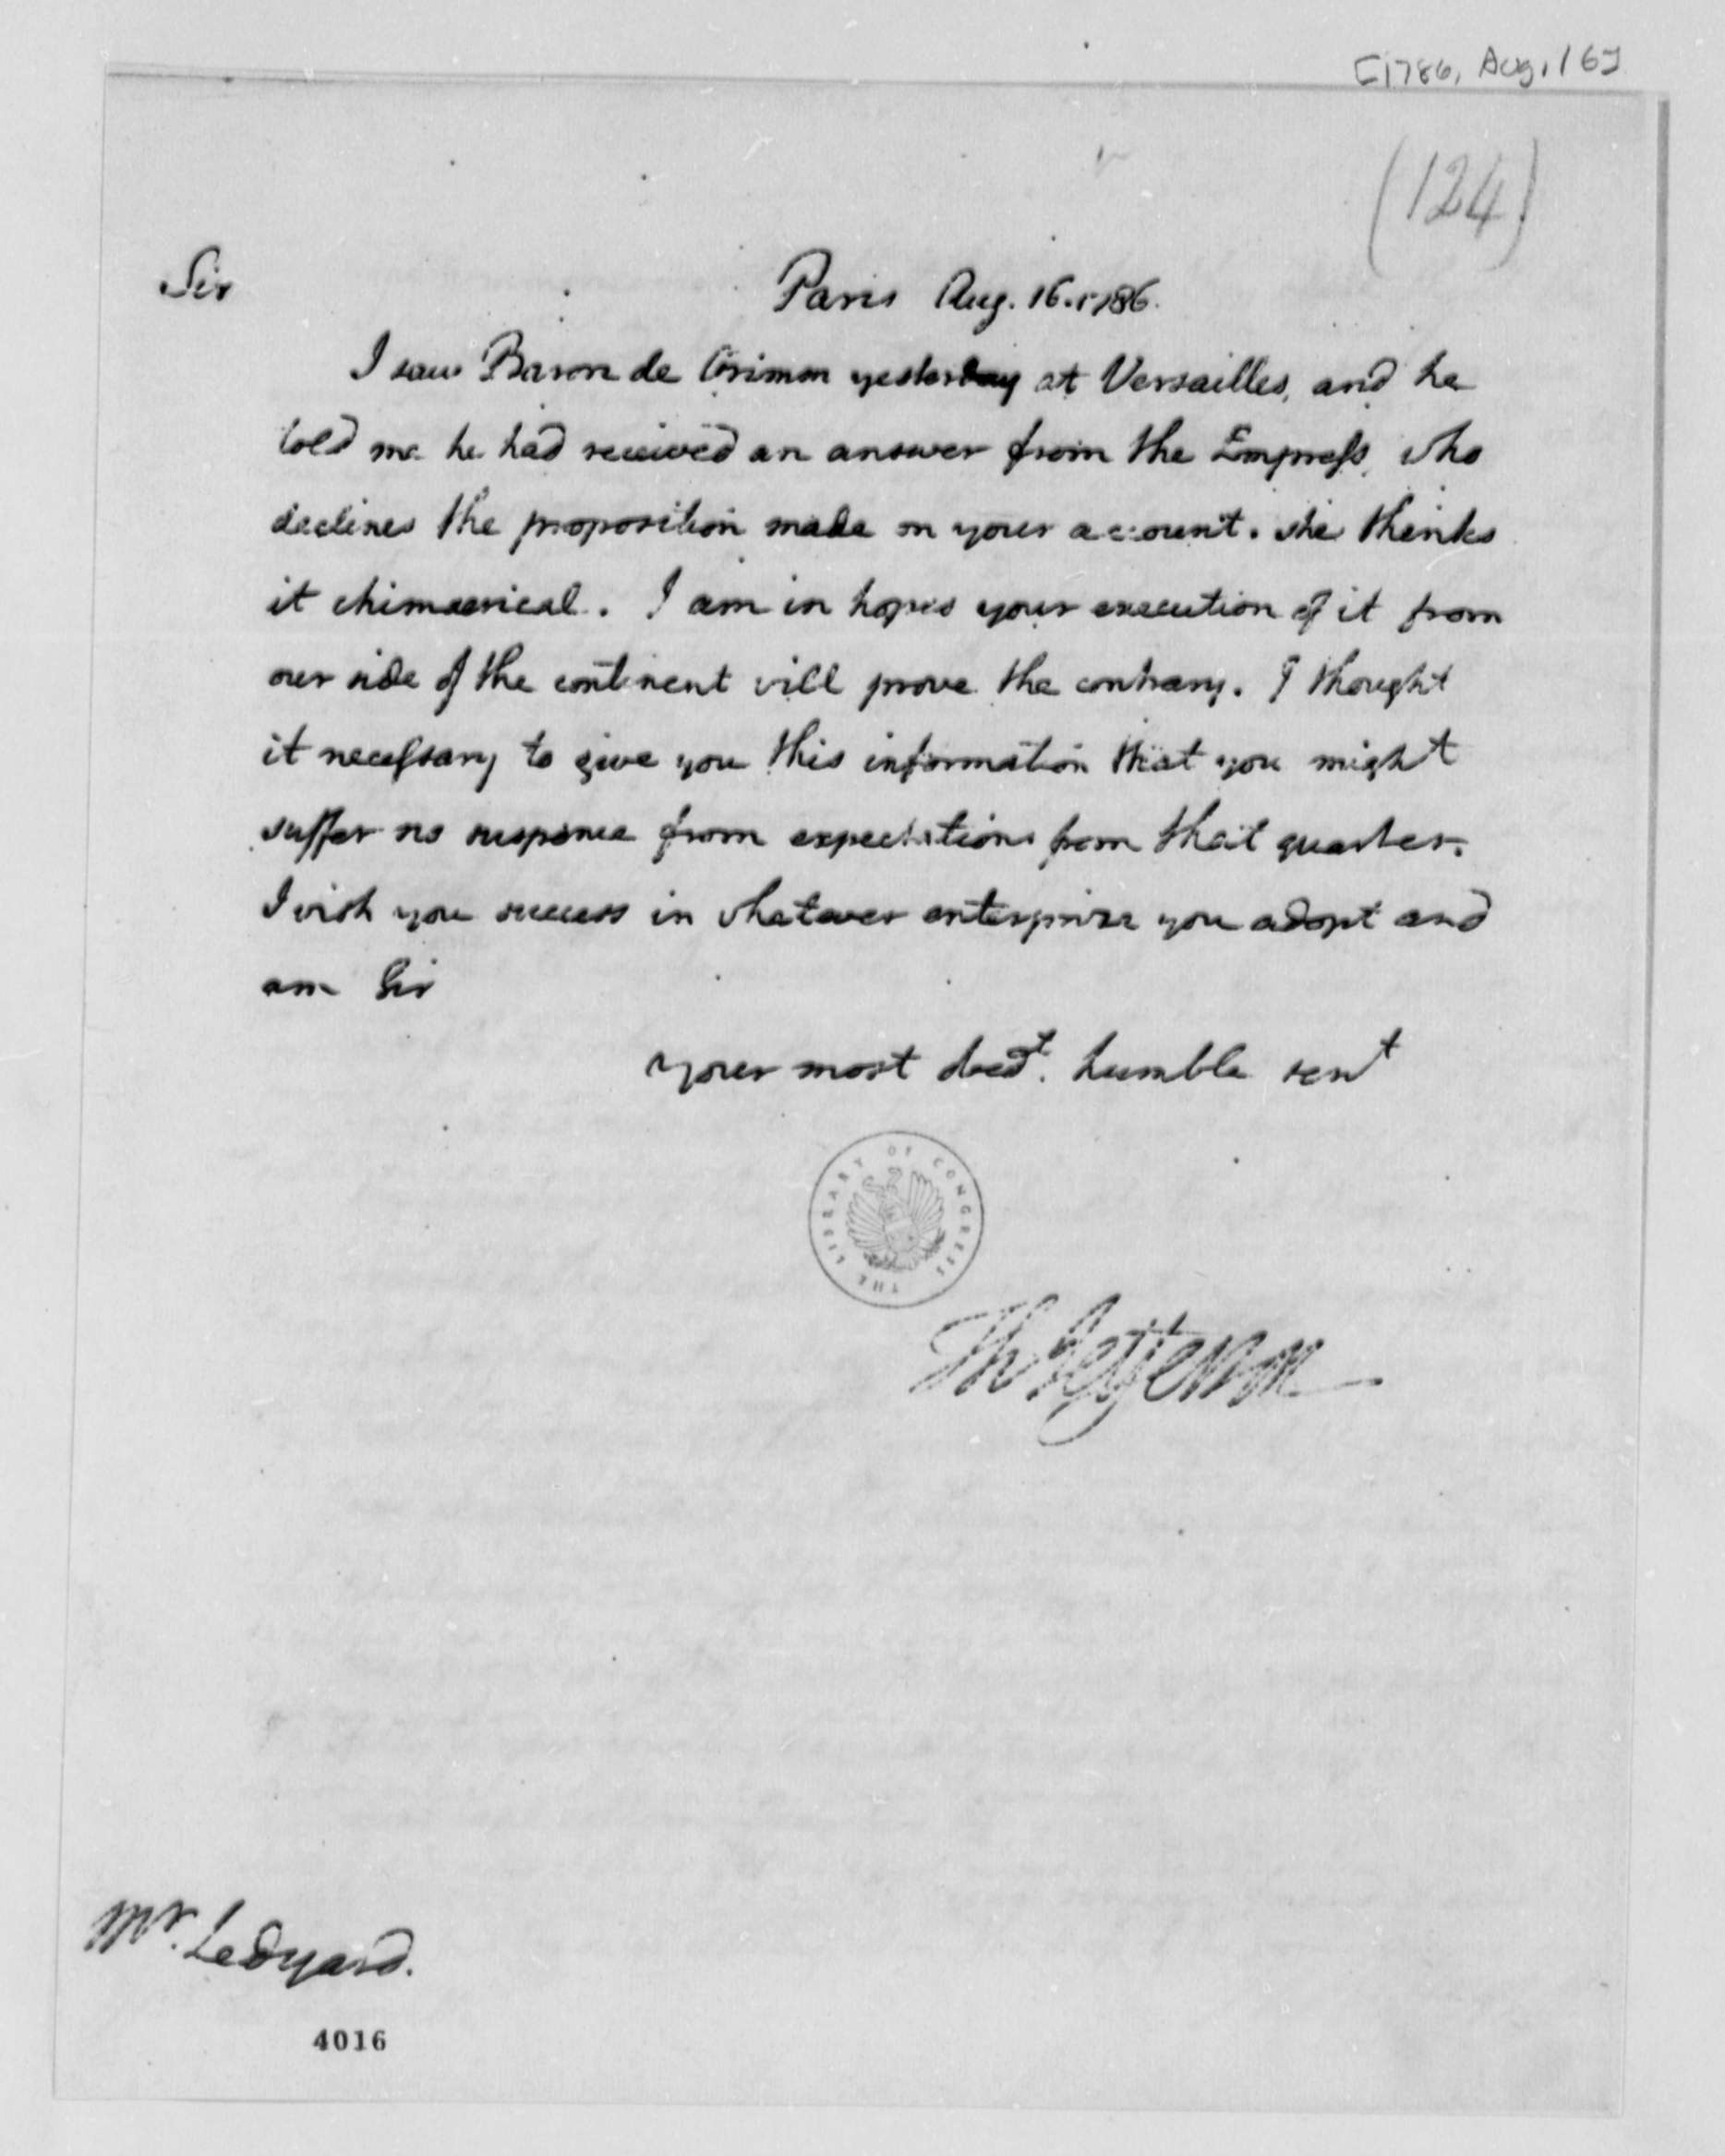 [1786, Aug. 16]
(124)
Sir
Paris Aug. 16. 1786.
I saw Baron de Grimm yesterday at Versailles, and he
told me he had received an answer from the Empress, who
declines the proposition made on your account. she thinks
it chimaerical. I am in hopes your execution of it from
our side of the continent will prove the contrary. I thought
it necessary to give you this information that you might
suffer no suspence from expectations from that quarter.
I wish you success in whatever enterprize you adopt and
am Sir
your most obedt. humble servt
THE LIBRARY OF CONGRESS
Th Jefferson
Mr. Ledyard.
4016